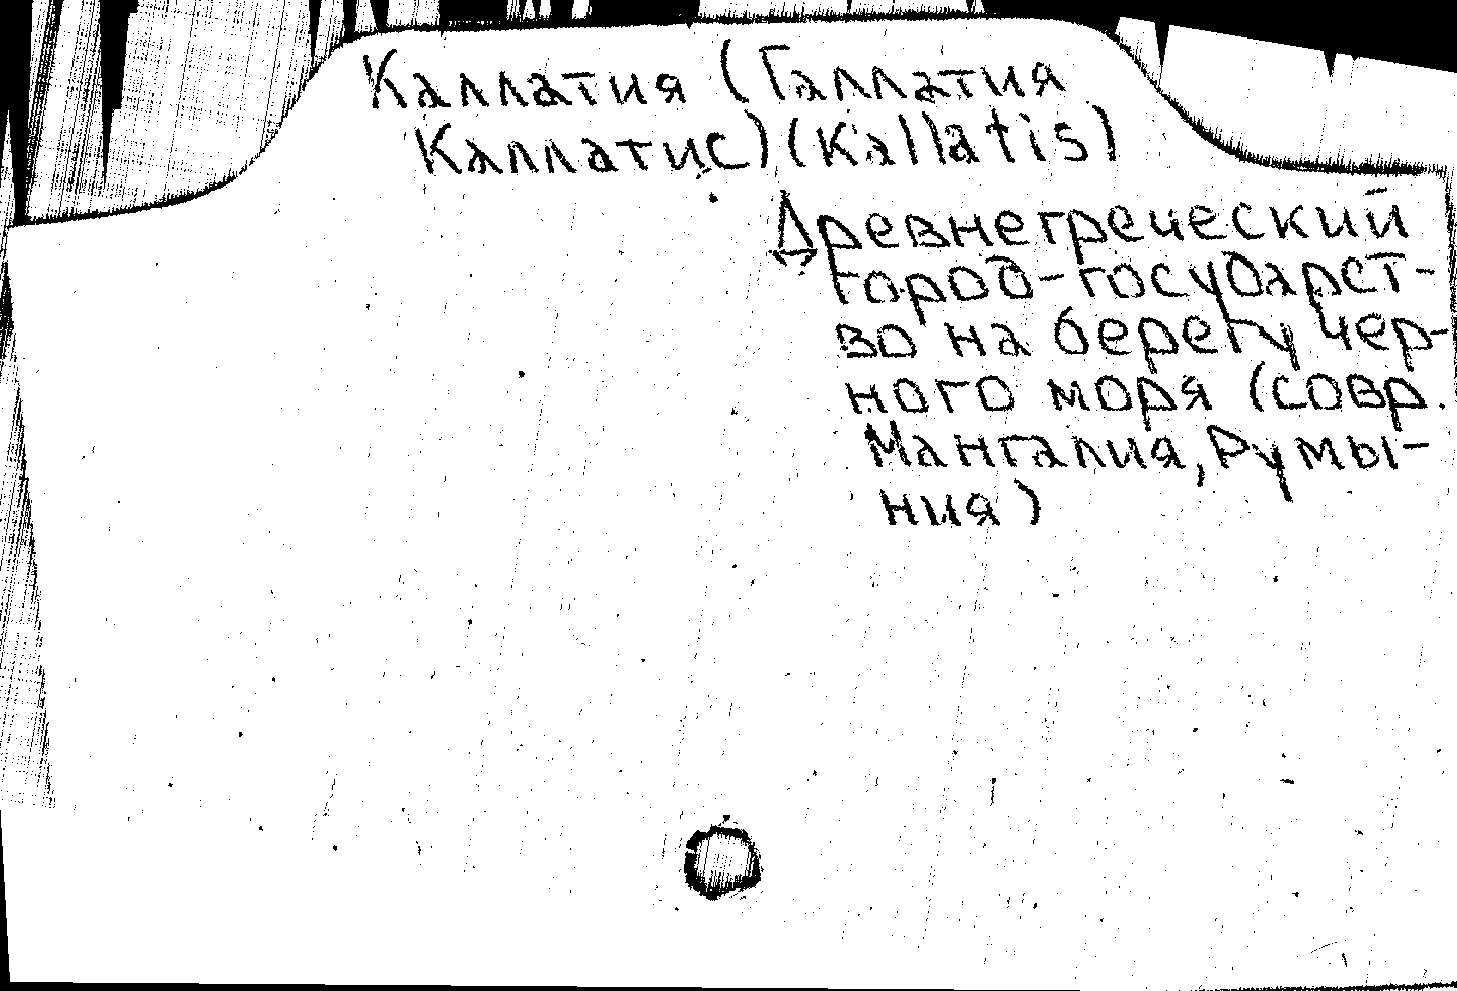 Каллатия (Галлатия
Каллатис) (Kallatis)
Древнегреческий
город-государст-
во на берегу Чер-
ного моря (совр.
Мангалия, Румы-
ния)